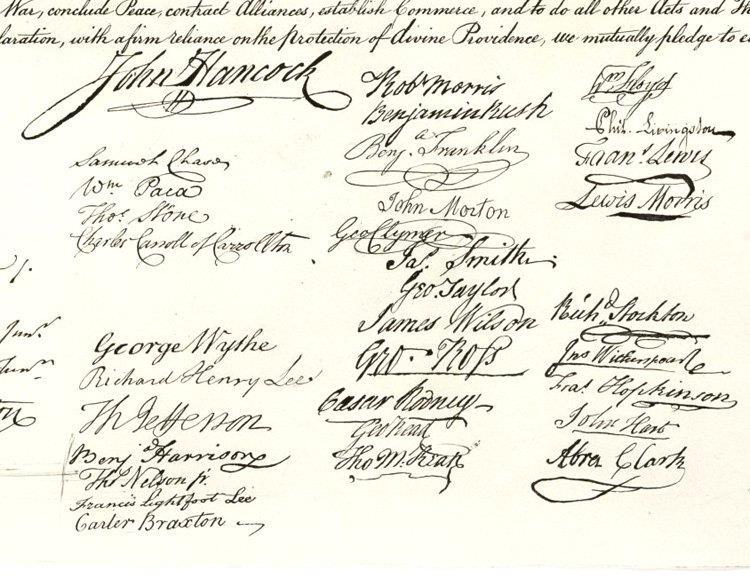 War, conclude Peace, contract Alliances, establish Commerce, and to do all other Acts and Th
laration, with a firm reliance on the Protection of divine Providence, we mutually pledge to e
John Hancock
Samuel Chase
Wm Paca
Thos. Stone
Charles Carroll of Carrollton
George Wythe
Richard Henry Lee
Th Jefferson
Benja Harrison
Thos Nelson jr.
Francis Lightfoot Lee
Carter Braxton
Robt Morris
Benjamin Rush
Benja. Franklin
John Morton
Geo Clymer
Jas. Smith
Geo. Taylor
James Wilson
Geo. Ross
Caesar Rodney
Geo Read
Tho M:Kean
Wm Floyd
Phil. Livingston
Frans. Lewis
Lewis Morris
Richd. Stockton
Jno Witherspoon
Fras. Hopkinson
John Hart
Abra Clark